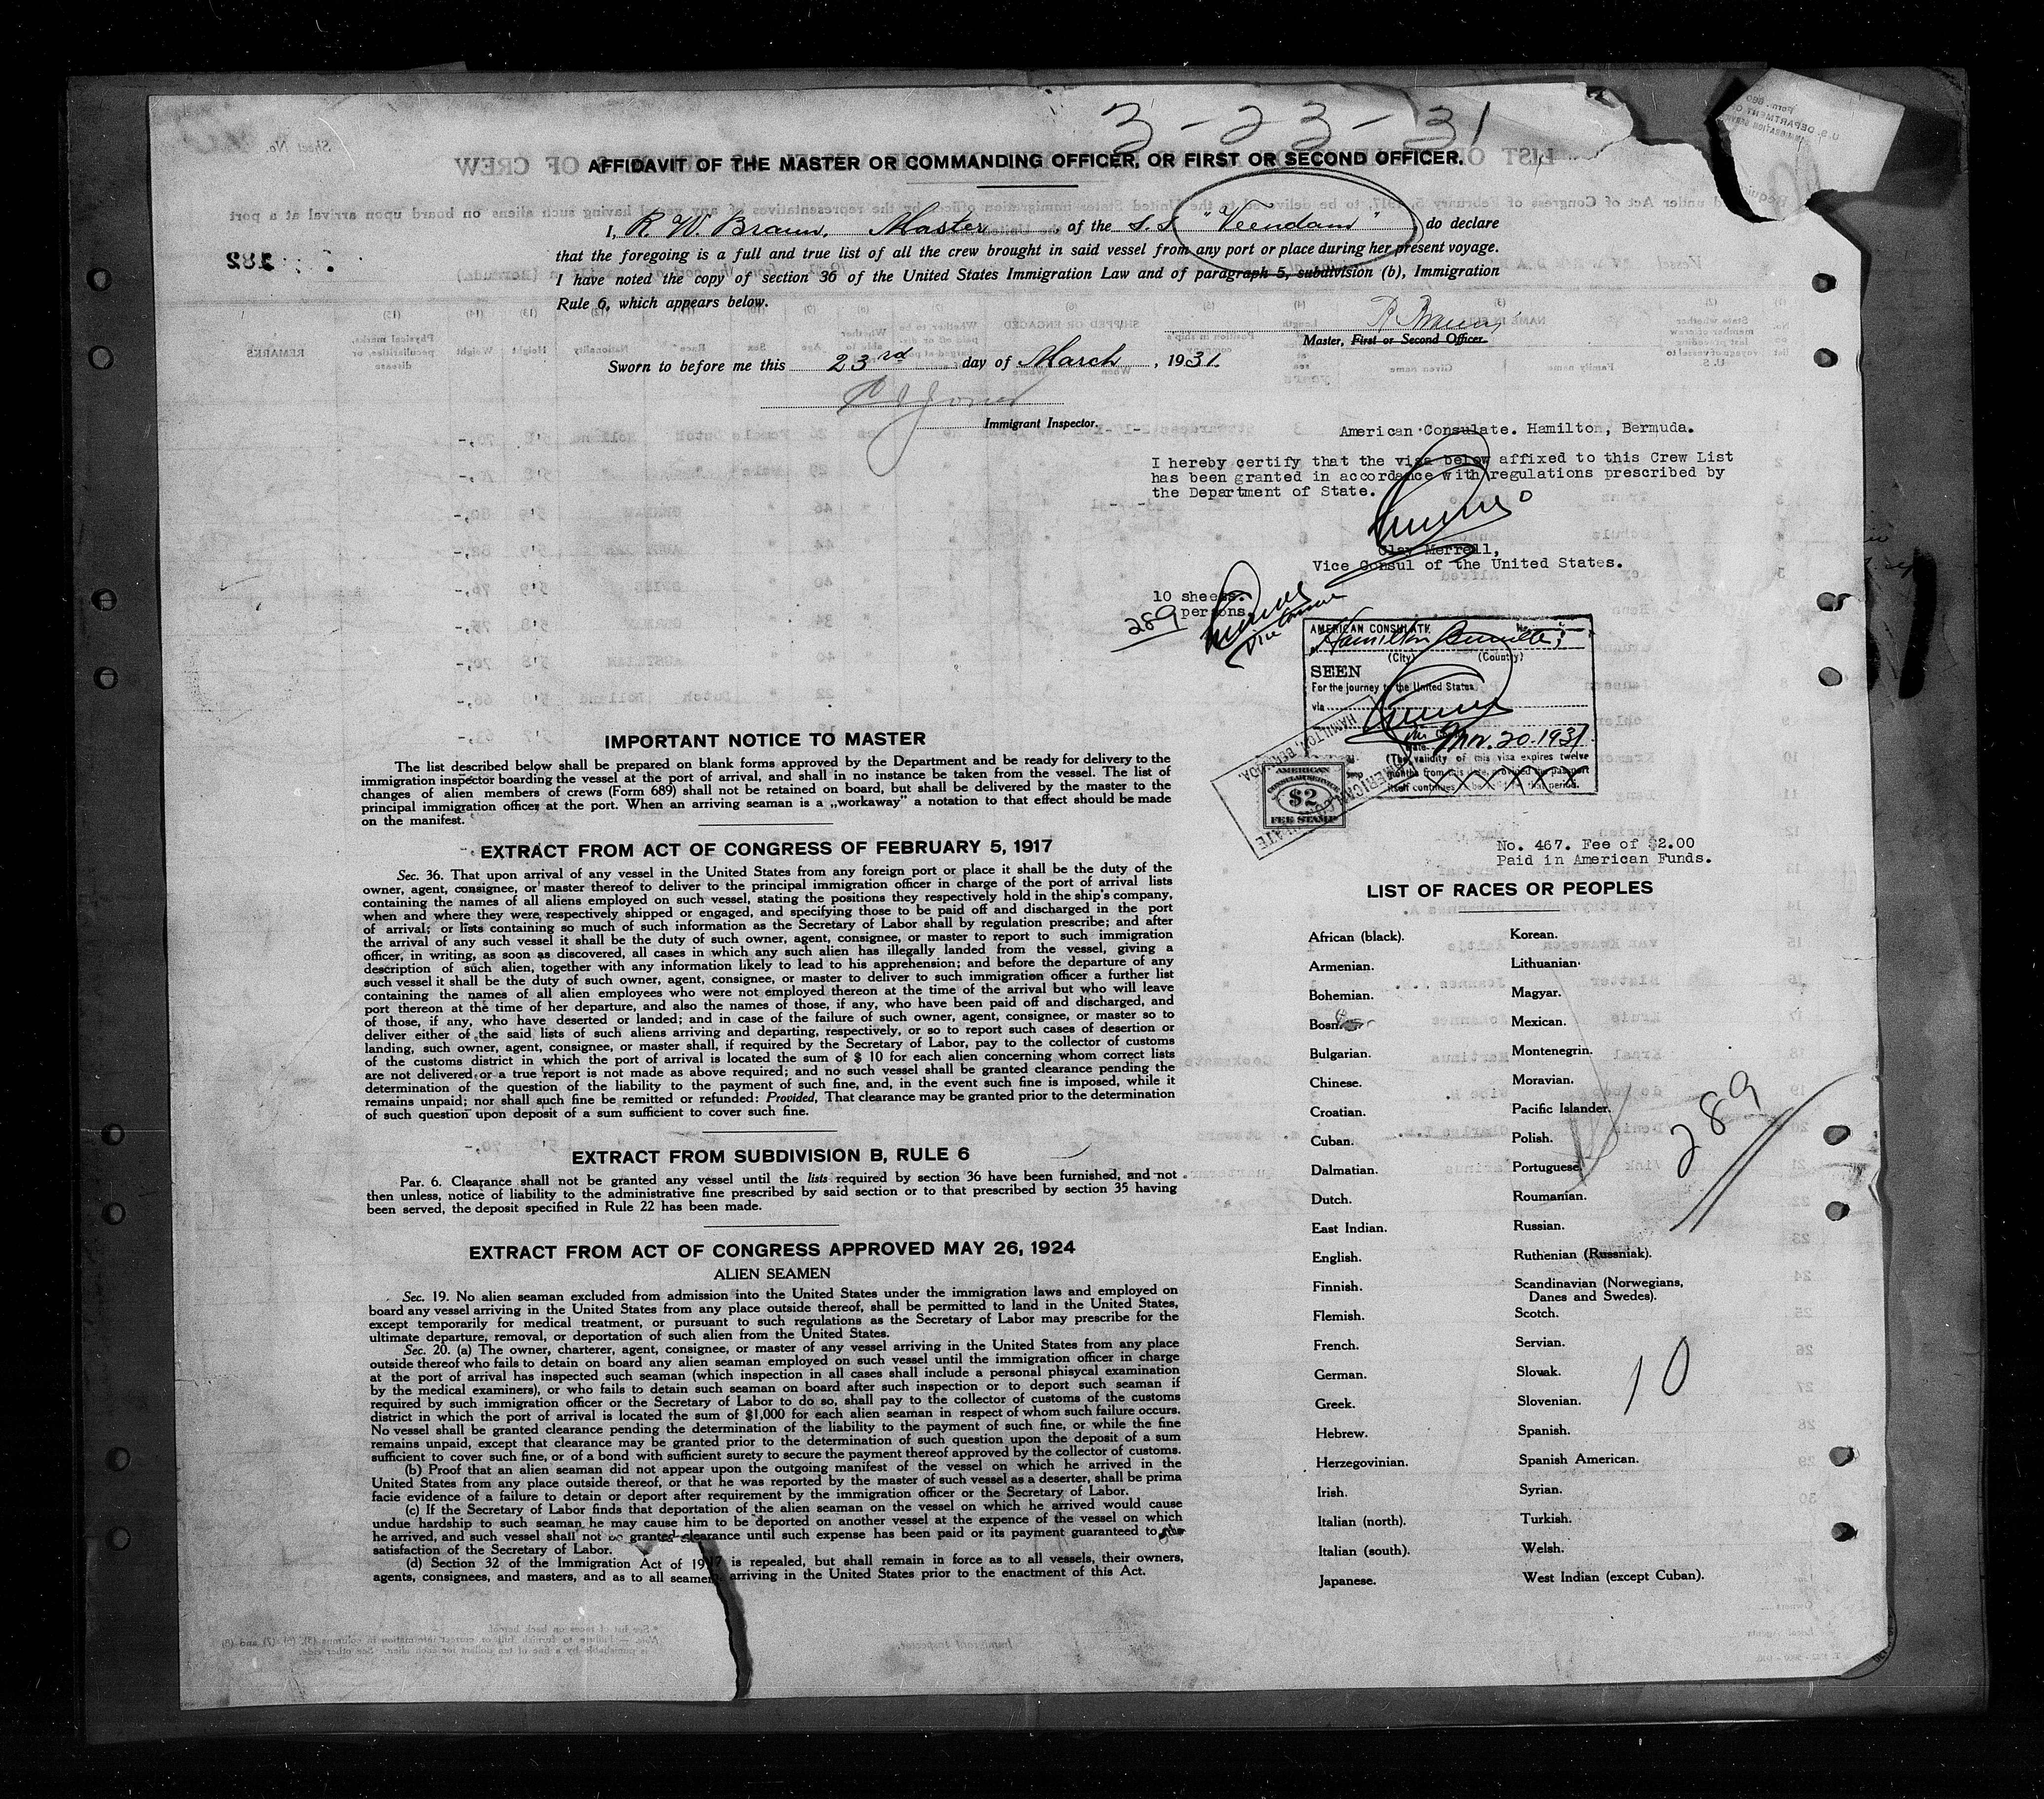 3-23-31
AFFIDAVIT OF THE MASTER OR COMMANDING OFFICER, OR FIRST OR SECOND OFFICER.
I, R. W. Braun, Master, of the S.S. "Veendam" do declare
that the foregoing is a full and true list of all the crew brought in said vessel from any port or place during her present voyage.
I have noted the copy of section 36 of the United States Immigration Law and of paragraph 5, subdivision (b), Immigration
Rule 6, which appears below.
Master, First or Second Officer.
Sworn to before me this 23rd day of March, 1931.
Immigrant Inspector.
American Consulate. Hamilton, Bermuda.
I hereby certify that the visa below affixed to this Crew List
has been granted in accordance with regulations prescribed by
the Department of State.
Clay Merrell,
Vice Consul of the United States.
10 sheets.
289 persons
Vice Consul
AMERICAN CONSULATE
at Hamilton, Bermuda
(City) (Country)
SEEN
For the journey to the United States
via
Date Mar. 20. 1931
(The validity of this visa expires twelve
months from this date, provided the passport
itself continues to be valid for that period.
AMERICAN CONSULATE
HAMILTON, BERMUDA
AMERICAN
CONSULAR SERVICE
$2
FEE STAMP
No. 467. Fee of $2.00
Paid in American Funds.
IMPORTANT NOTICE TO MASTER
The list described below shall be prepared on blank forms approved by the Department and be ready for delivery to the
immigration inspector boarding the vessel at the port of arrival, and shall in no instance be taken from the vessel. The list of
changes of alien members of crews (Form 689) shall not be retained on board, but shall be delivered by the master to the
principal immigration officer at the port. When an arriving seaman is a „workaway” a notation to that effect should be made
on the manifest.
EXTRACT FROM ACT OF CONGRESS OF FEBRUARY 5, 1917
Sec. 36. That upon arrival of any vessel in the United States from any foreign port or place it shall be the duty of the
owner, agent, consignee, or master thereof to deliver to the principal immigration officer in charge of the port of arrival lists
containing the names of all aliens employed on such vessel, stating the positions they respectively hold in the ship's company,
when and where they were respectively shipped or engaged, and specifying those to be paid off and discharged in the port
of arrival; or lists containing so much of such information as the Secretary of Labor shall by regulation prescribe; and after
the arrival of any such vessel it shall be the duty of such owner, agent, consignee, or master to report to such immigration
officer, in writing, as soon as discovered, all cases in which any such alien has illegally landed from the vessel, giving a
description of such alien, together with any information likely to lead to his apprehension; and before the departure of any
such vessel it shall be the duty of such owner, agent, consignee, or master to deliver to such immigration officer a further list
containing the names of all alien employees who were not employed thereon at the time of the arrival but who will leave
port thereon at the time of her departure, and also the names of those, if any, who have been paid off and discharged, and
of those, if any, who have deserted or landed; and in case of the failure of such owner, agent, consignee, or master so to
deliver either of the said lists of such aliens arriving and departing, respectively, or so to report such cases of desertion or
landing, such owner, agent, consignee, or master shall, if required by the Secretary of Labor, pay to the collector of customs
of the customs district in which the port of arrival is located the sum of $ 10 for each alien concerning whom correct lists
are not delivered or a true report is not made as above required; and no such vessel shall be granted clearance pending the
determination of the question of the liability to the payment of such fine, and, in the event such fine is imposed, while it
remains unpaid; nor shall such fine be remitted or refunded: Provided, That clearance may be granted prior to the determination
of such question upon deposit of a sum sufficient to cover such fine.
EXTRACT FROM SUBDIVISION B, RULE 6
Par. 6. Clearance shall not be granted any vessel until the lists required by section 36 have been furnished, and not
then unless, notice of liability to the administrative fine prescribed by said section or to that prescribed by section 35 having
been served, the deposit specified in Rule 22 has been made.
EXTRACT FROM ACT OF CONGRESS APPROVED MAY 26, 1924
ALIEN SEAMEN
Sec. 19. No alien seaman excluded from admission into the United States under the immigration laws and employed on
board any vessel arriving in the United States from any place outside thereof, shall be permitted to land in the United States,
except temporarily for medical treatment, or pursuant to such regulations as the Secretary of Labor may prescribe for the
ultimate departure, removal, or deportation of such alien from the United States.
Sec. 20. (a) The owner, charterer, agent, consignee, or master of any vessel arriving in the United States from any place
outside thereof who fails to detain on board any alien seaman employed on such vessel until the immigration officer in charge
at the port of arrival has inspected such seaman (which inspection in all cases shall include a personal phisycal examination
by the medical examiners), or who fails to detain such seaman on board after such inspection or to deport such seaman if
required by such immigration officer or the Secretary of Labor to do so, shall pay to the collector of customs of the customs
district in which the port of arrival is located the sum of $1,000 for each alien seaman in respect of whom such failure occurs.
No vessel shall be granted clearance pending the determination of the liability to the payment of such fine, or while the fine
remains unpaid, except that clearance may be granted prior to the determination of such question upon the deposit of a sum
sufficient to cover such fine, or of a bond with sufficient surety to secure the payment thereof approved by the collector of customs.
(b) Proof that an alien seaman did not appear upon the outgoing manifest of the vessel on which he arrived in the
United States from any place outside thereof, or that he was reported by the master of such vessel as a deserter, shall be prima
facie evidence of a failure to detain or deport after requirement by the immigration officer or the Secretary of Labor.
(c) If the Secretary of Labor finds that deportation of the alien seaman on the vessel on which he arrived would cause
undue hardship to such seaman he may cause him to be deported on another vessel at the expence of the vessel on which
he arrived, and such vessel shall not be granted clearance until such expense has been paid or its payment guaranteed to the
satisfaction of the Secretary of Labor.
(d) Section 32 of the Immigration Act of 1917 is repealed, but shall remain in force as to all vessels, their owners,
agents, consignees, and masters, and as to all seamen arriving in the United States prior to the enactment of this Act.
LIST OF RACES OR PEOPLES
African (black).
Armenian.
Bohemian.
Bosn
Bulgarian.
Chinese.
Croatian.
Cuban.
Dalmatian.
Dutch.
East Indian.
English.
Finnish.
Flemish.
French.
German.
Greek.
Hebrew.
Herzegovinian.
Irish.
Italian (north).
Italian (south).
Japanese.
Korean.
Lithuanian.
Magyar.
Mexican.
Montenegrin.
Moravian.
Pacific Islander.
Polish.
Portuguese.
Roumanian.
Russian.
Ruthenian (Russniak).
Scandinavian (Norwegians,
Danes and Swedes).
Scotch.
Servian.
Slowak.
Slovenian.
Spanish.
Spanish American.
Syrian.
Turkish.
Welsh.
West Indian (except Cuban).
289
10